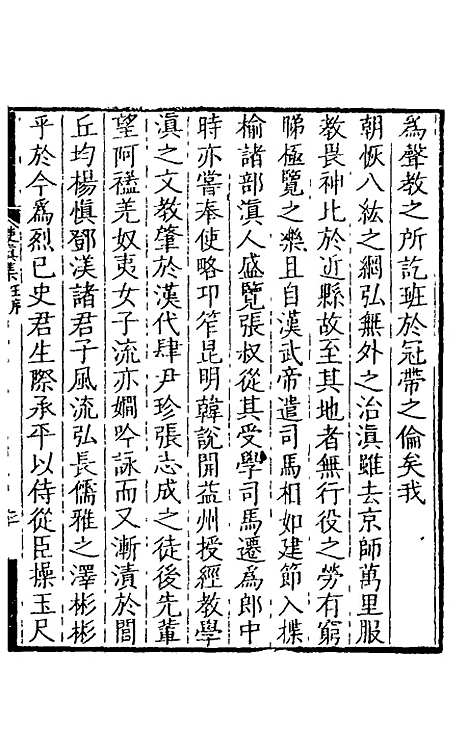 為聲教之所訖班於冠帶之倫矣我
朝恢八紘之綱弘無外之治滇雖去京師萬里服
教畏神比於近縣故至其地者無行役之勞有窮
睇極覽之樂且自漢武帝遣司馬相如建節入楪
榆諸部滇人盛覽張叔從其受學司馬遷為郎中
時亦嘗奉使略卭笮昆明韓說開益州授經教學
滇之文教肇於漢代肆尹珍張志成之徒後先軰
望阿𥜥羌奴夷女子流亦嫺吟詠而又漸漬於閻
丘均楊慎鄧渼諸君子風流弘長儒雅之澤彬彬
乎於今為烈已史君生際承平以侍從臣操玉尺
使滇集